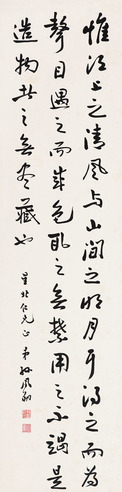 惟江上之清風与山間之明月耳得之而為
聲目遇之而成色取之無禁用之不竭是
造物者之無盡藏也
星北仁兄正 弟孫